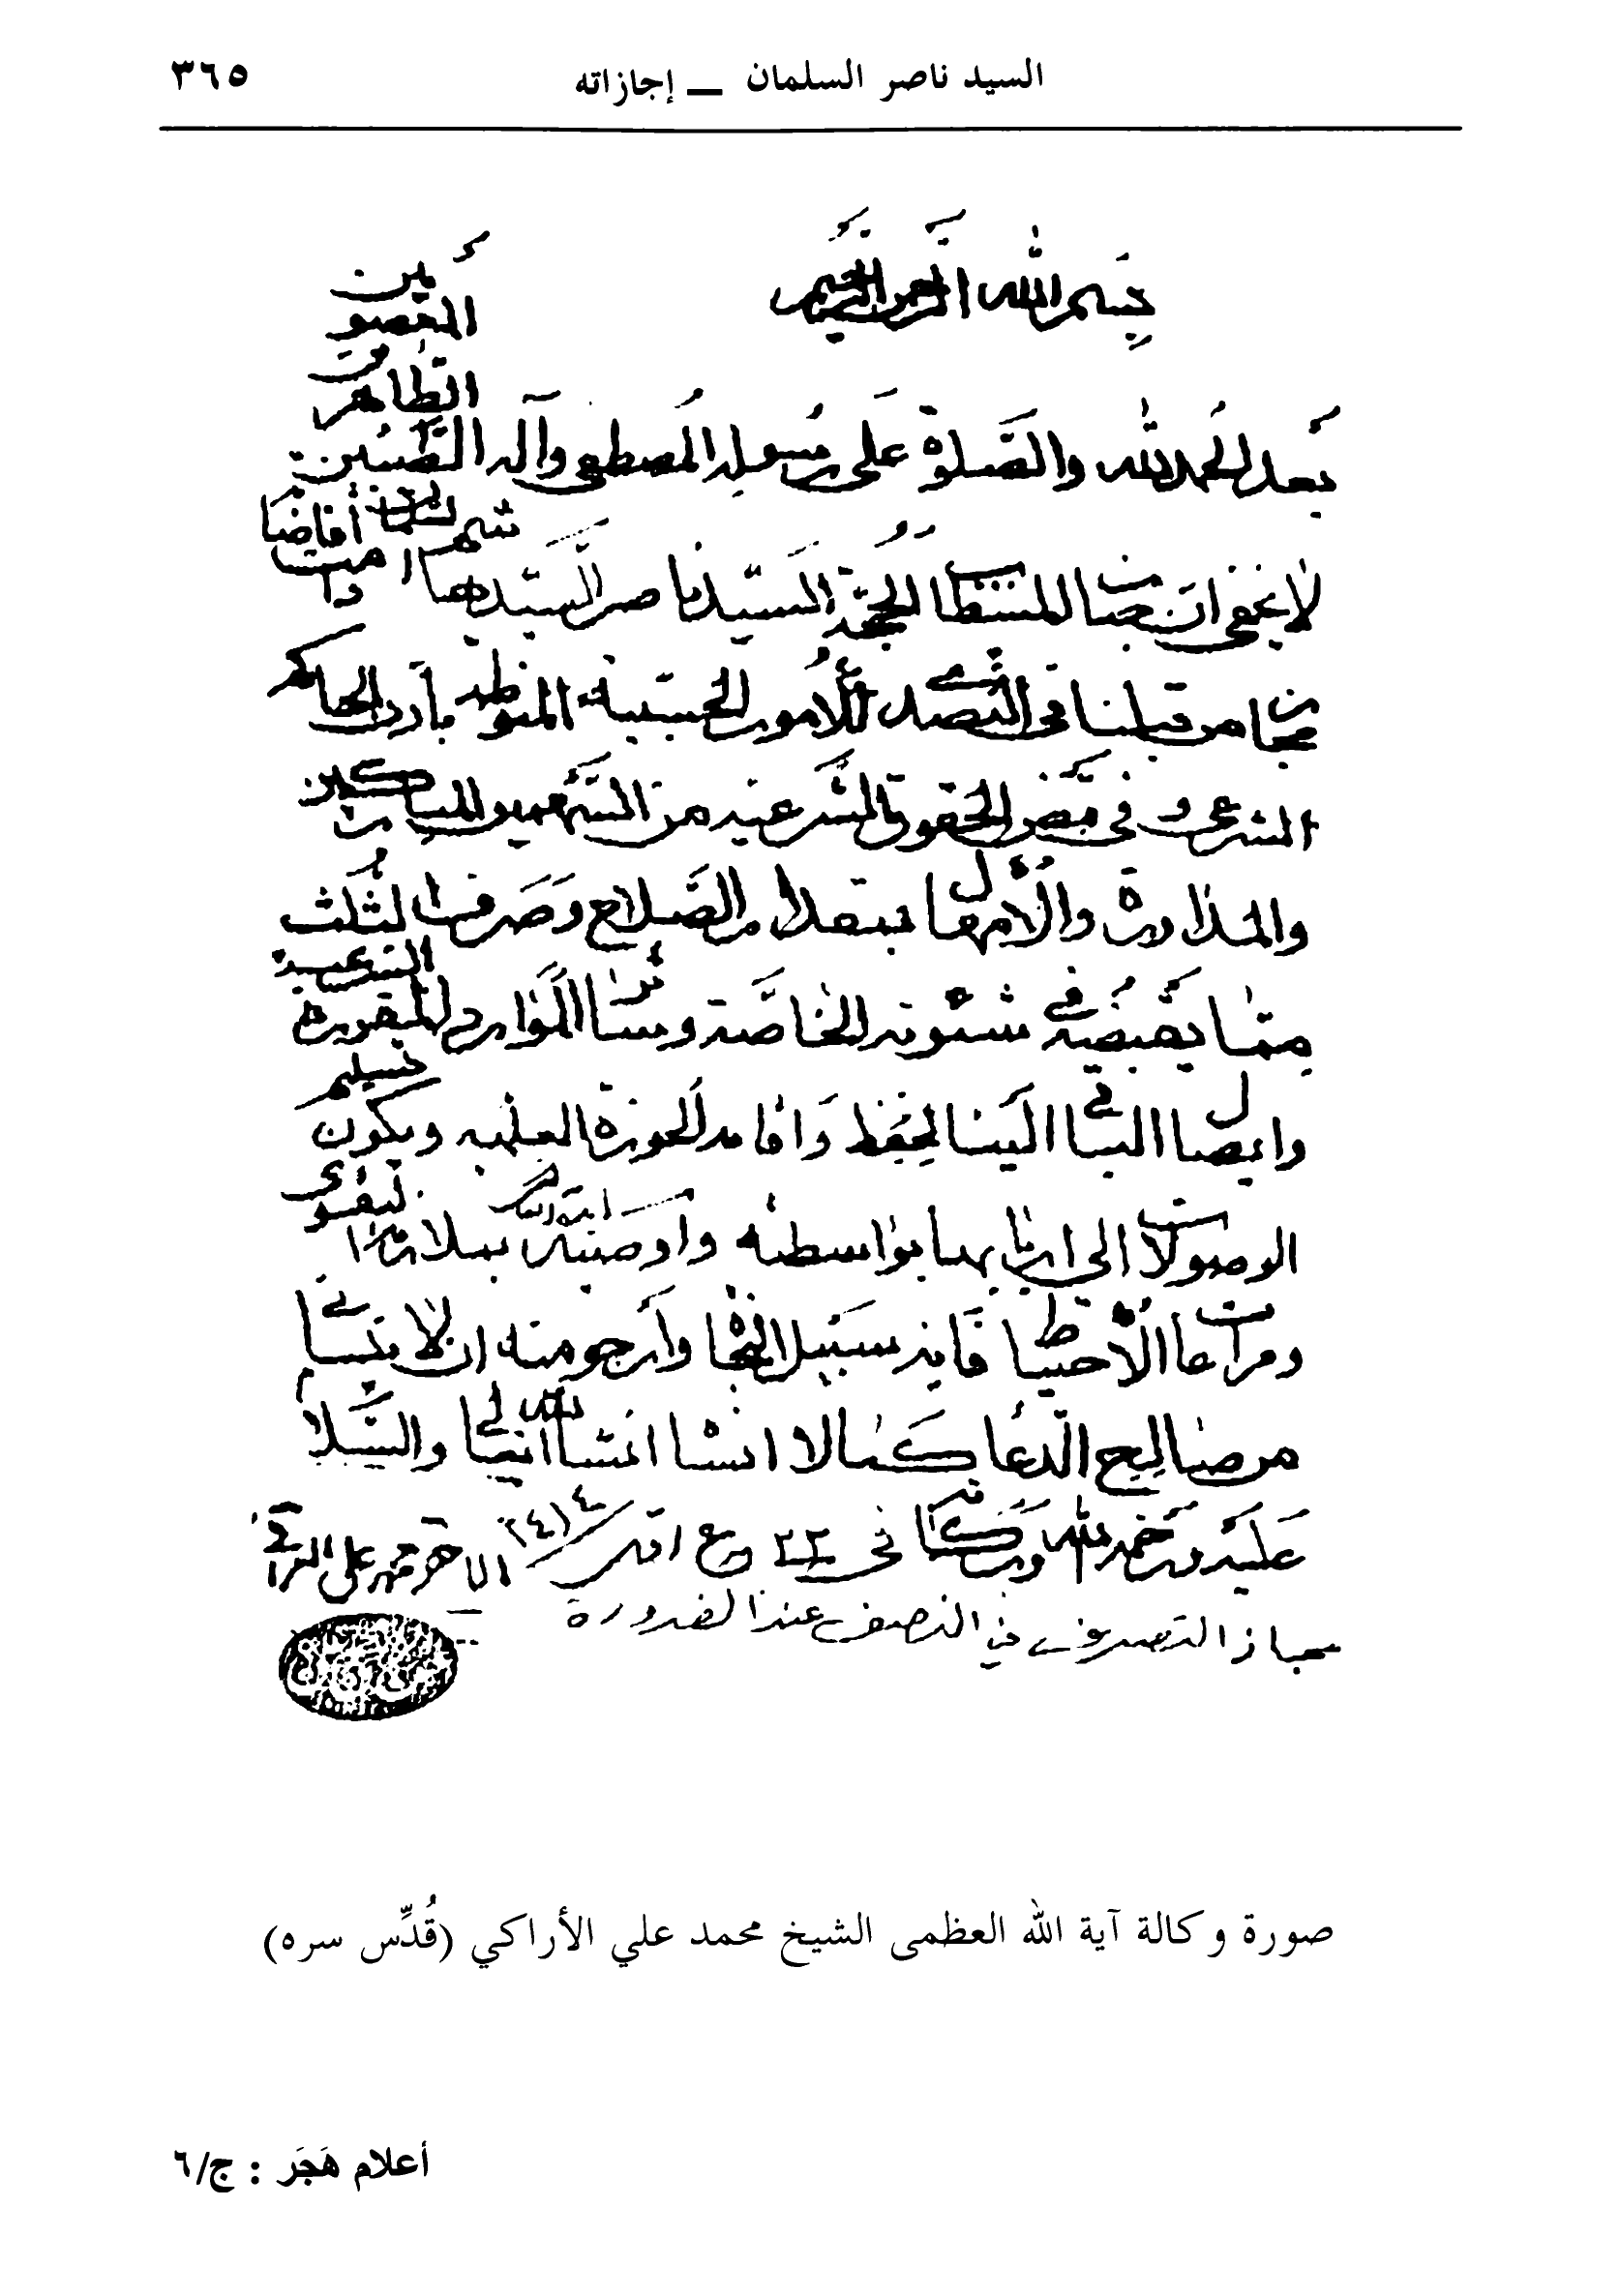 السيد ناصر السلمان ــ إجازاته ٣٦٥
بسم الله الرحمن الرحيم
بعد الحمد لله والصلوة على رسوله المصطفى وآله الطيبين الطاهرين المعصومين
لا يخفى ان جناب المستطاب الحجة السيد ناصر السيد هاشم السلمان دامت أفاضاته
مجاز من قبلنا في التصدى للأمور الحسبية المنوطة بأذن الحاكم
الشرعى وفي قبض الحقوق الشرعيه من السهمين المباركين
والمدارة والأمهال بمقدار الصلاح وصرف الثلث
مما يقبضه في شئونه الخاصة وسائر الموارد المقررة الشرعية
وايصال الباقي الينا لحفظ واقامه الحوزة العلميه ويكون تسليم
الوصولات الى اربابها بواسطته واوصيه ايده الله بملازمة التقوى
ومراعات الأحتياط فانه سبيل النجاة وأرجو منه ان لا ينساني
من صالح الدعاء كما لا انساه انشاء الله تعالى والسلام
عليه ورحمة الله وبركاته في ٢٢ ربيع ١٤١٤ الاحقر محمد على العراقي
مجاز التصرف في النصف عند الضرورة
صورة وكالة آية الله العظمى الشيخ محمد علي الأراكي (قُدِّس سره)
أعلام هَجَر : ج/٦